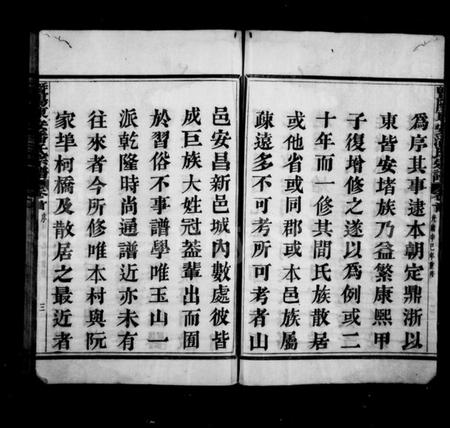 為序其事逮本朝定鼎浙以
東皆安堵族乃益繁康熙甲
子復增修之遂以為例或二
十年而一修其間氏族散居
或他省或同郡或本邑族屬
疎遠多不可考所可考者山
邑安昌新邑城內數處彼皆
成巨族大姓冠蓋輩出而囿
於習俗不事譜學唯玉山一
派乾隆時尚通譜近亦未有
往來者今所修唯本村與阮
家埠柯橋及散居之最近者
序
三